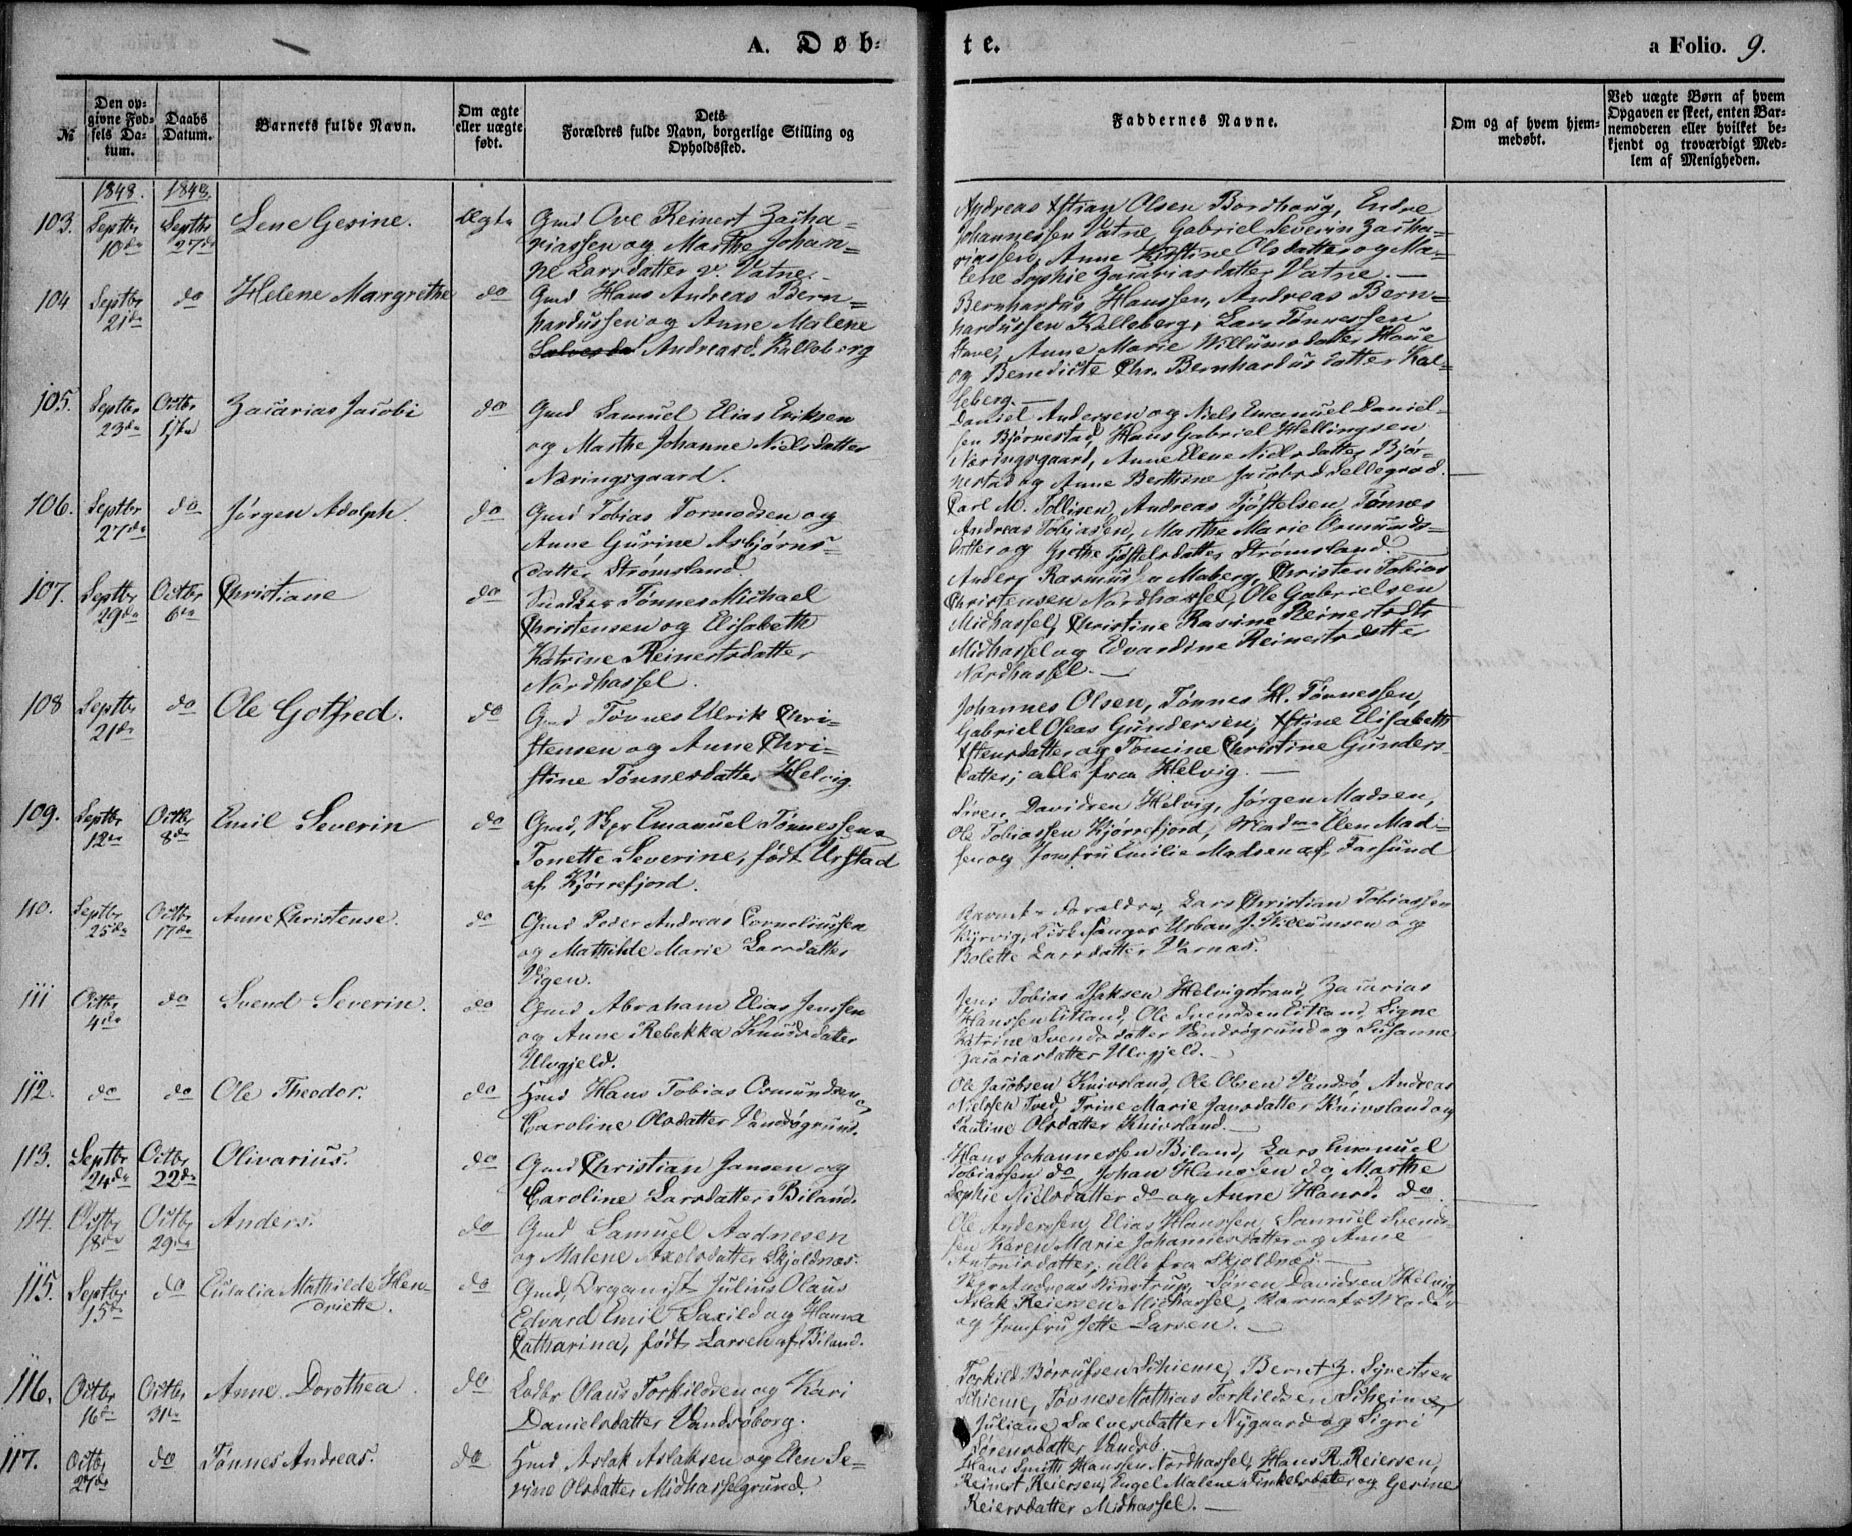 A. Døb-
te.
a Folio. 9.
No
Den op-
givne Fød-
sels Da-
tum.
Daabs
Datum.
Barnets fulde Navn.
Om ægte
eller uægte
født.
Dets
Forældres fulde Navn, borgerlige Stilling og
Opholdssted.
Faddernes Navne.
Om og af hvem hjem-
medøbt.
Ved uægte Børn af hvem
Opgaven er skeet, enten Bar-
nemoderen eller hvilket be-
kjendt og troværdigt Med-
lem af Menigheden.
1848. 1848.
103. Septbr 10de Septbr 27de Lene Gesine. Ægte
Gmd Ove Reinert Zacha-
riassen og Marthe Johan-
ne Larsdatter v. Vatne.
Andreas Xstian Olsen Bordhaug, Endre
Johannessen Vatne, Gabriel Severin Zacha-
riassen, Anne Kirstine Olsdatter og Ma-
lene Sophie Zacariasdatter Vatne.
104 Septbr 21de do Helene Margrethe do
Gmd Hans Andreas Bern-
hardussen og Anne Malene
Andreasd. Kalleberg
Bernhardus Hanssen, Andreas Bern-
hardussen Kalleberg, Lars Tønnessen
Stave, Anne Marie Willumsdatter Haue
og Benedicte Chr. Bernhardusdatter Kal-
leberg.
105. Septbr 23de Octbr 1ste Zacarias Jacobi do
Gmd Samuel Elias Eriksen
og Marthe Johanne Nielsdatter
Næringsgaard.
Daniel Andersen og Niels Emanuel Daniel-
sen Bjørnestad, Hans Gabriel Hellingsen
Næringsgaard, Anne Elene Nielsdatter Bjør-
nestad og Anne Berthine Jacobsd Sellegrod.
106. Septbr 27de do Jørgen Adolph. do
Gmd Tobias Tormodsen og
Anne Gurine Asbjørns-
datter Strømsland.
Carl M. Tollisen, Andreas Tjøstelsen, Tønnes
Andreas Tobiassen, Marthe Marie Osmunds-
datter og Grethe Tjøstelsdatter Strømsland.
107. Septbr 29de Octbr 6te Christiane do
Tønnes Michael
Christensen og Elisabeth
Katrine Reinertsdatter
Nordhassel.
Anders Rasmussen Maberg, Christen Tobias
Christensen Nordhassel, Ole Gabrielsen
Midhassel, Christine Rasine Reinertsdtr
Midhassel og Edvardine Reinertsdatter
Nordhassel.
108 Septbr 21de do Ole Gotfred. do
Gmd Tønnes Ulrik Chri-
stensen og Anne Chri-
stine Tønnesdatter Helvig
Johannes Olsen, Tønnes H. Tønnessen,
Gabriel Oseas Gundersen, Xstine Elisabeth
Xstensdatter og Tomine Christine Gunders-
datter; alle fra Helvig.
109. Septbr 12te Octbr 8de Emil Severin do
Gmd, Emanuel Tønnessen og
Tonette Severine, født Urstad
af Kjørrefjord.
Søren Davidsen Helvig, Jørgen Madsen,
Ole Tobiassen Kjørrefjord, Madme Elen Mad-
sen og Jomfru Emilie Madsen af Farsund
110. Septbr 25de Octbr 17de Anne Christense. do
Gmd Peder Andreas Corneliussen
og Mathilde Marie Larsdatter
Vigen.
Barnets Forældre, Lars Christian Tobiassen
Kirkesanger Urban J. Willumsen og
Bolette Larsdatter Varnæs.
111 Octbr 4de do Svend Severin. do
Gmd Abraham Elias Jenssen
og Anne Rebekka Knudsdatter
Ulvgjeld.
Jens Tobias Isaksen Helvigstrand, Zacarias
Hanssen Eitland, Ole Svendsen Eitland, Signe
Katrine Svendsdatter Vandsøgrund og Susanne
Zacariasdatter Ulvgjeld.
112. do do Ole Theodor. do
Hmd Hans Tobias Osmundsen og
Caroline Olsdatter Vandsøgrund.
Ole Jacobsen Knivsland, Ole Olsen Vandsø Andreas
Nielsen Tved, Trine Marie Jansdatter Knivsland og
Pauline Olsdatter Knivsland.
113. Septbr 24de Octbr 22de Olivarius. do
Gmd Christian Jansen og
Caroline Larsdatter Biland.
Hans Johannessen Biland, Lars Emanuel
Tobiassen do Johan Hanssen do, Marthe
Sophie Nielsdatter do og Anne Hansd. do
114. Octbr 18de Octbr 29de Anders. do
Gmd Samuel Aadnesen
og Malene Axelsdatter Skjoldnæs.
Ole Anderssen, Elias Hanssen, Samuel Svend-
sen Karen Marie Johannesdatter og Anne
Antonisdatter, alle fra Skjoldnæs.
115. Septbr 15de do Eulalia Mathilde Hen-
driette. do
Gmd, Organist Julius Olaus
Edvard Emil Saxild og Hanna
Catharina, født Larsen af Biland.
Andreas Kinstrup, Søren Davidsen Helvig
Aslak Reiersen Midhassel, Barnets Moder
og Jomfru Jette Larsen.
116. Octbr 16de Octbr 31te Anne Dorothea. do
Olaus Torkildsen og Kari
Danielsdatter Vandsøborg.
Torkild Børrufsen Schieme, Bernt Z. Syvertsen
Schieme, Tønnes Mathias Torkildsen Scheime,
Juliane Salvesdatter Nygaard og Sigri
Sørensdatter Vandsø.
117. Octbr 27de do Tønnes Andreas. do
Hmd Aslak Aslaksen og Elen Se-
vine Olsdatter Midhasselgrund.
Hans Smith Hanssen Nordhassel, Hans R. Reiersen,
Reinert Reiersen, Engel Malene Finkelsdatter og Gesine
Reiersdatter Midhassel.